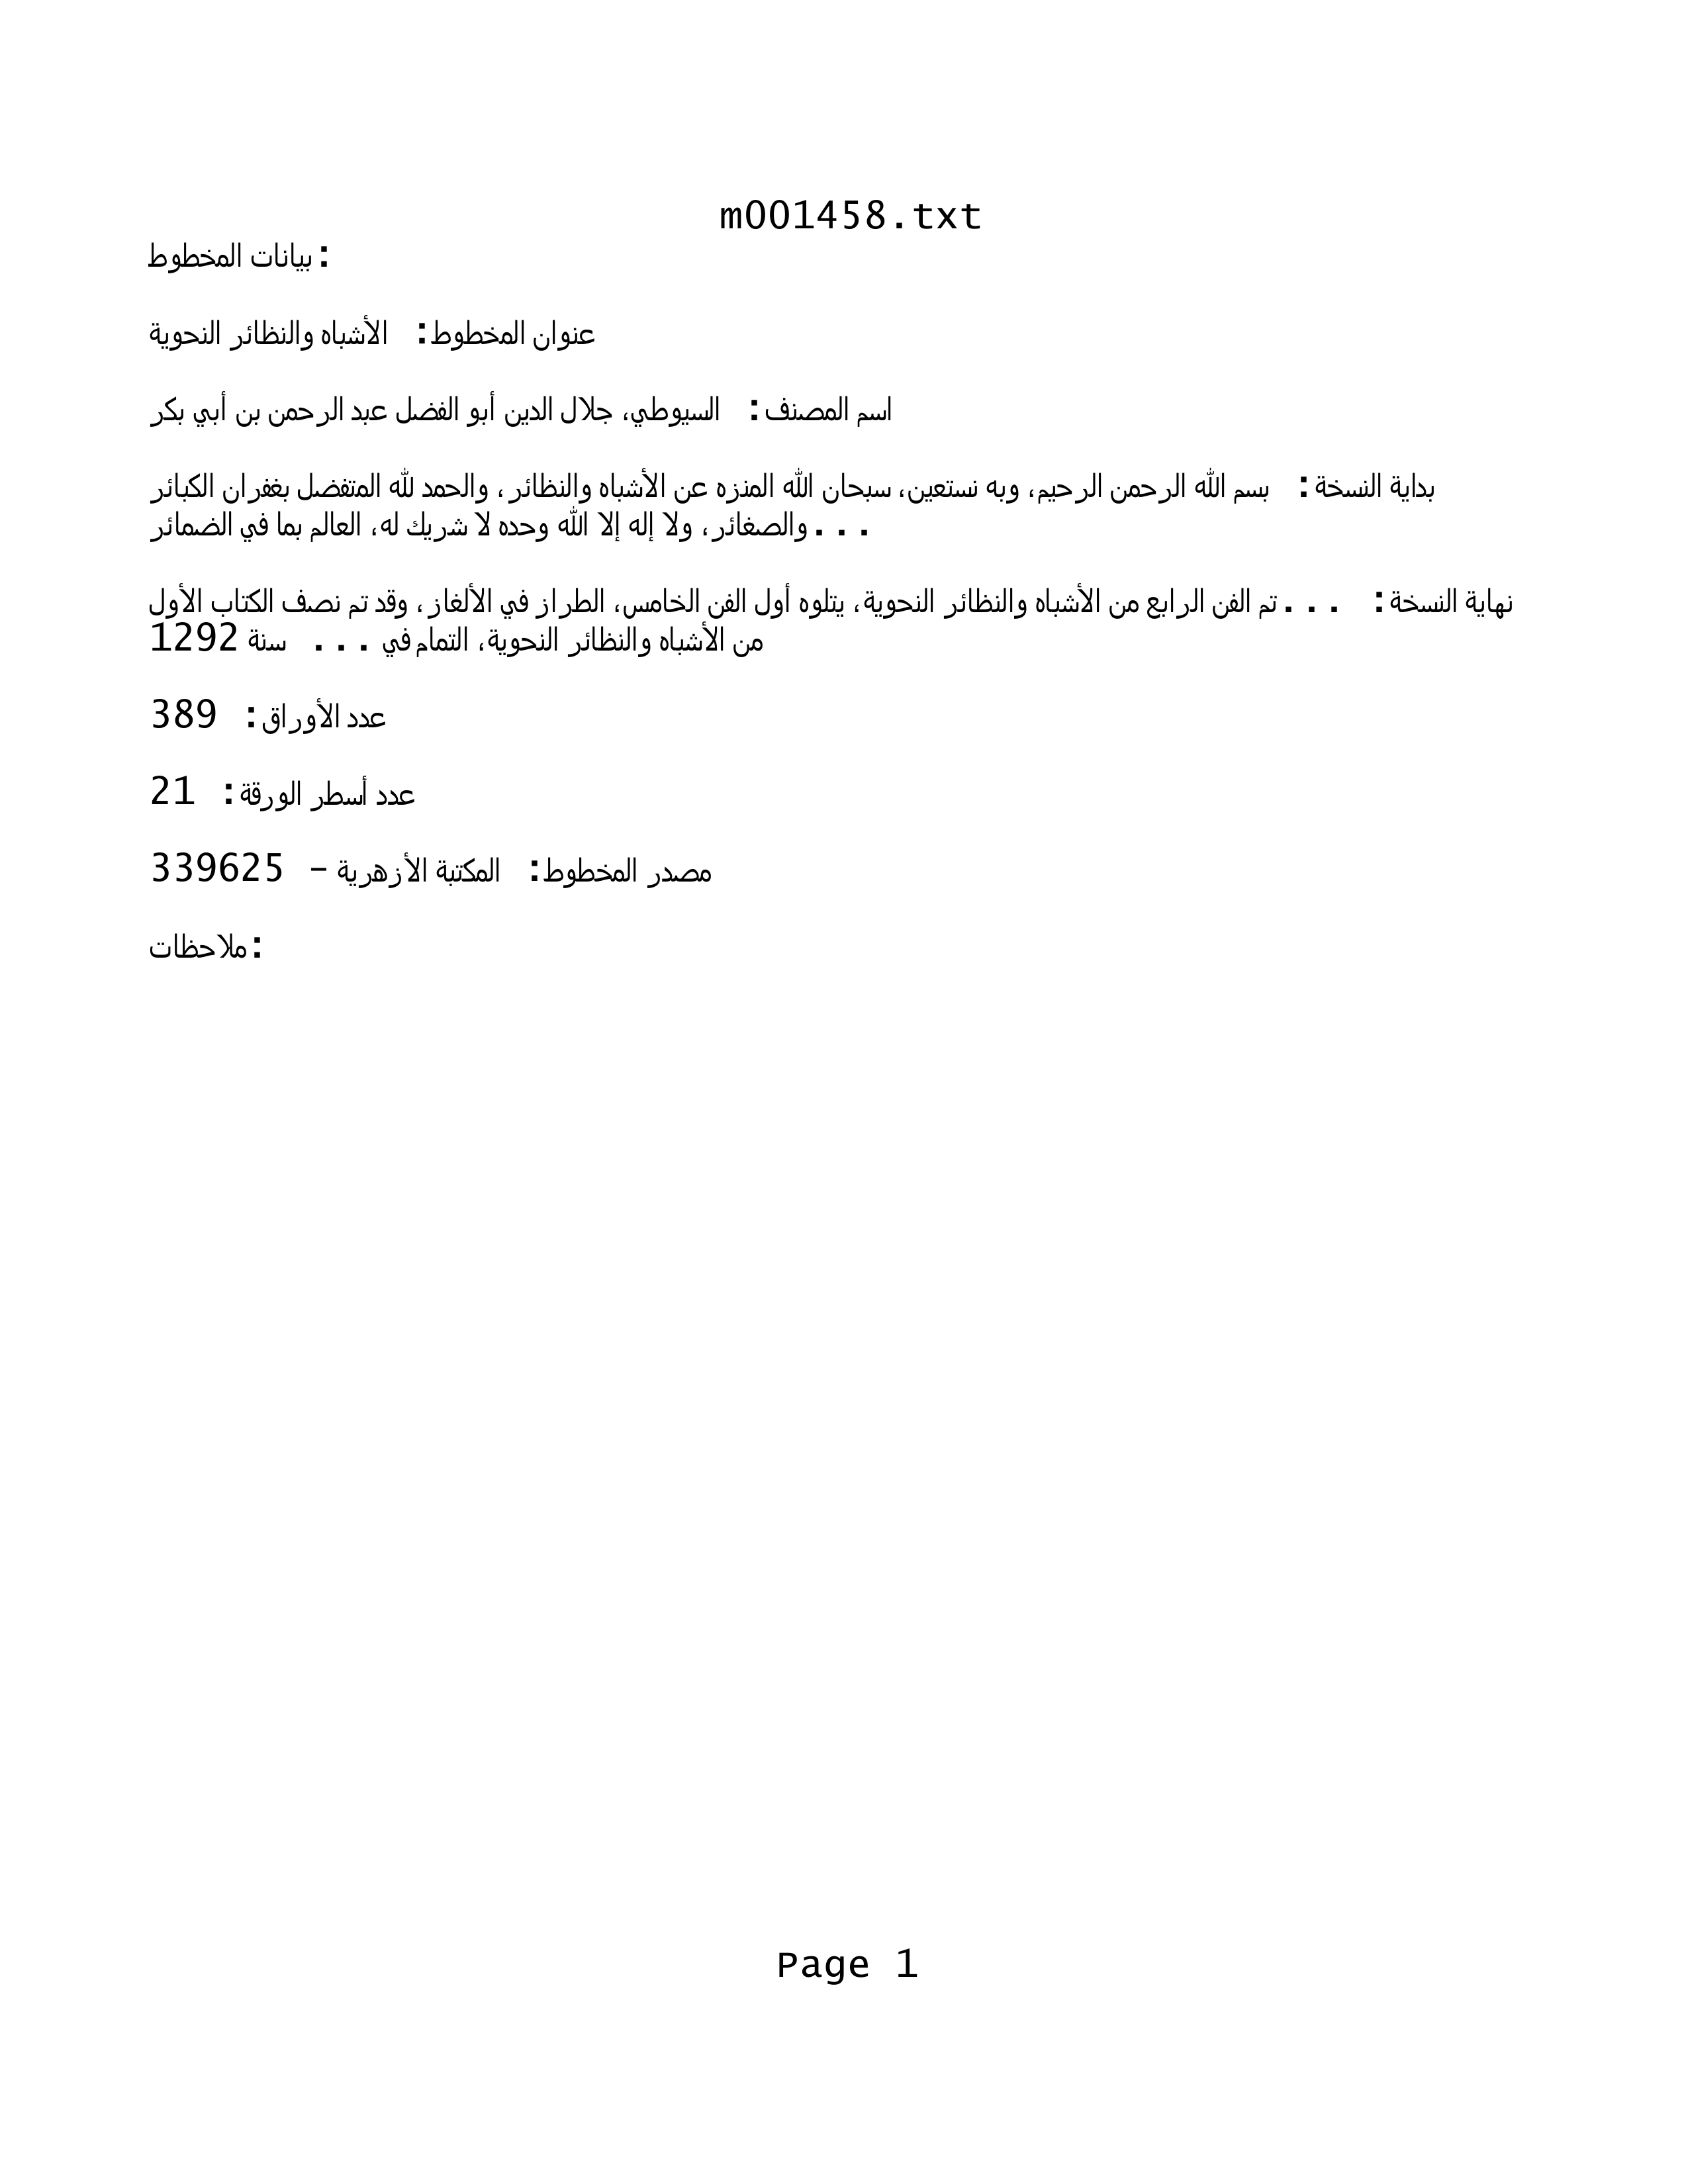 m001458.txt
بيانات المخطوط:
عنوان المخطوط: الأشباه والنظائر النحوية
اسم المصنف: السيوطي، جلال الدين أبو الفضل عبد الرحمن بن أبي بكر
بداية النسخة: بسم الله الرحمن الرحيم، وبه نستعين، سبحان الله المنزه عن الأشباه والنظائر، والحمد لله المتفضل بغفران الكبائر
والصغائر، ولا إله إلا الله وحده لا شريك له، العالم بما في الضمائر...
نهاية النسخة: ...تم الفن الرابع من الأشباه والنظائر النحوية، يتلوه أول الفن الخامس، الطراز في الألغاز، وقد تم نصف الكتاب الأول
من الأشباه والنظائر النحوية، التمام في ... سنة 1292
عدد الأوراق: 389
عدد أسطر الورقة: 21
مصدر المخطوط: المكتبة الأزهرية – 339625
ملاحظات:
Page 1